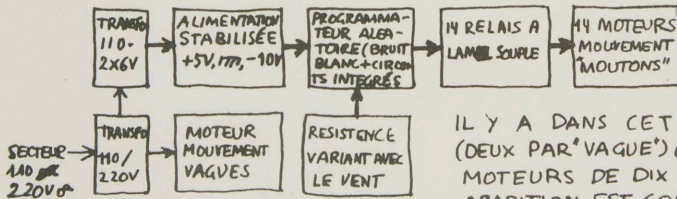 TRANSFO
110-
2X6V
ALIMENTATION
STABILISÉE
+5V, , -10V
PROGRAMMA-
TEUR ALEA-
TOIRE (BRUIT
BLANC+CIRCUI
TS INTEGRÉS
14 RELAIS A
LAME SOUPLE
14 MOTEURS
MOUVEMENT
"MOUTONS"
SECTEUR
110
220V
TRANSFO
110/
220V
MOTEUR
MOUVEMENT
VAGUES
RESISTENCE
VARIANT AVEC
LE VENT
IL Y A DANS CET
(DEUX PAR "VAGUE")
MOTEURS DE DIX